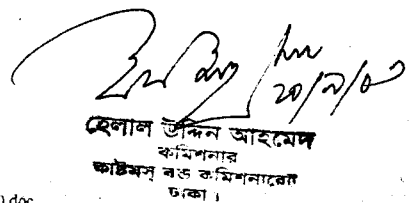 ২০/৯/০৩
হেলাল উদ্দিন আহমেদ
কমিশনার
কাষ্টমস্ বন্ড কমিশনারেট
ঢাকা ।
).doc